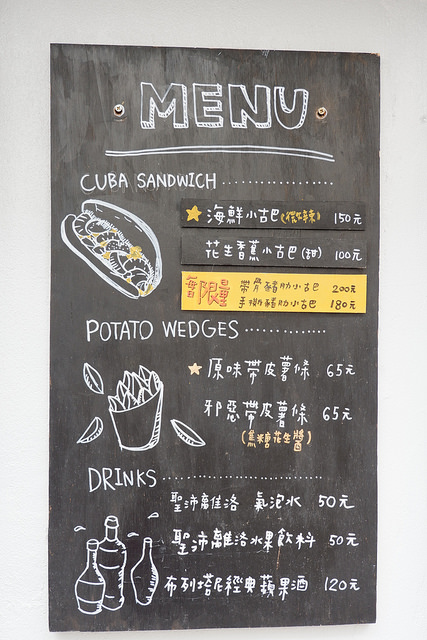 MENU
CUBA SANDWICH
海鮮小古巴(微辣) 150元
花生香蕉小古巴(甜) 100元
每日限量
帶骨豬肋小古巴 200元
手撕豬肋小古巴 180元
POTATO WEDGES
原味帶皮薯條 65元
邪惡帶皮薯條 65元
(焦糖花生醬)
DRINKS
聖沛離洛 氣泡水 50元
聖沛離洛水果飲料 50元
布列塔尼經典蘋果酒 120元